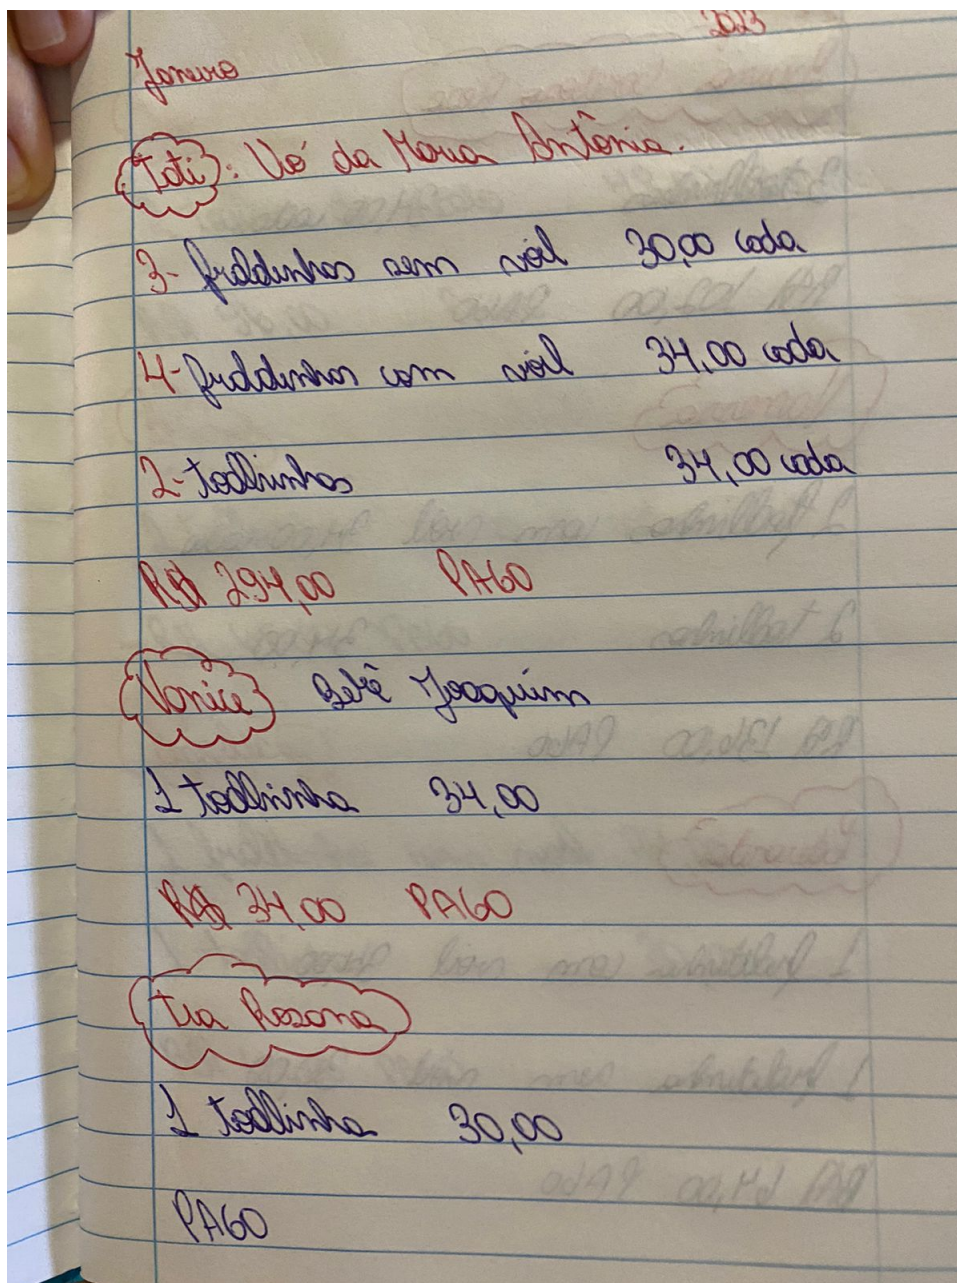 2023
Janeiro
Tati: Vó da Maria Antônia.
3- fraldinhas sem viól 30,00 cada
4- fraldinhas com viól 34,00 cada
2- toallinhas 34,00 cada
R$ 294,00 PAGO
Vanice Bebê Joaquim
1 toallinha 34,00
R$ 34,00 PAGO
tia Rosana
1 toallinha 30,00
PAGO